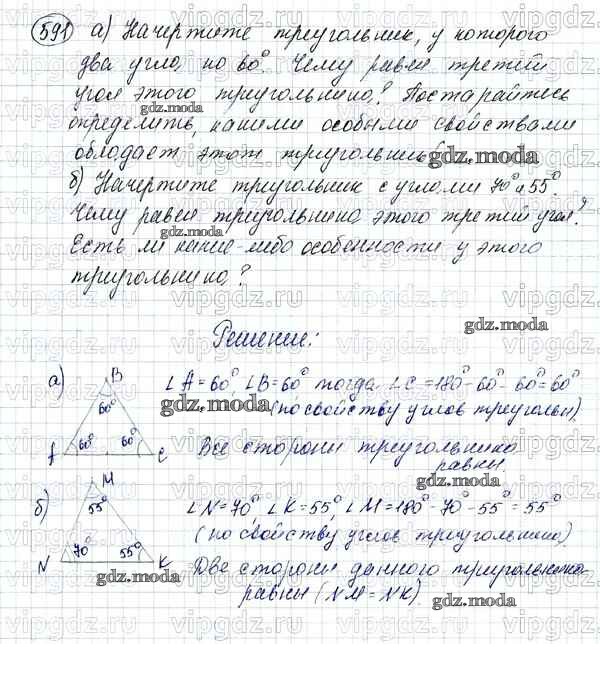 591 а) Начертите треугольник, у которого
два угла по 60°. Чему равен третий
угол этого треугольника? Постарайтесь
определить, какими особыми свойствами
обладает этот треугольник.
б) Начертите треугольник с углами 70° и 55°.
Чему равен треугольника этого третий угол?
Есть ли какие-либо особенности у этого
треугольника?
Решение:
а) B 60° 60° 60° C
∠A = 60° ∠B = 60° тогда ∠C = 180° - 60° - 60° = 60°
(по свойству углов треугольн.)
Все стороны треугольника
равны.
б) M 55° N 70° 55° K
∠N = 70°, ∠K = 55°, ∠M = 180° - 70° - 55° = 55°
(по свойству углов треугольника)
Две стороны данного треугольника
равны (NM = NK).
vipgdz.ru
gdz.moda